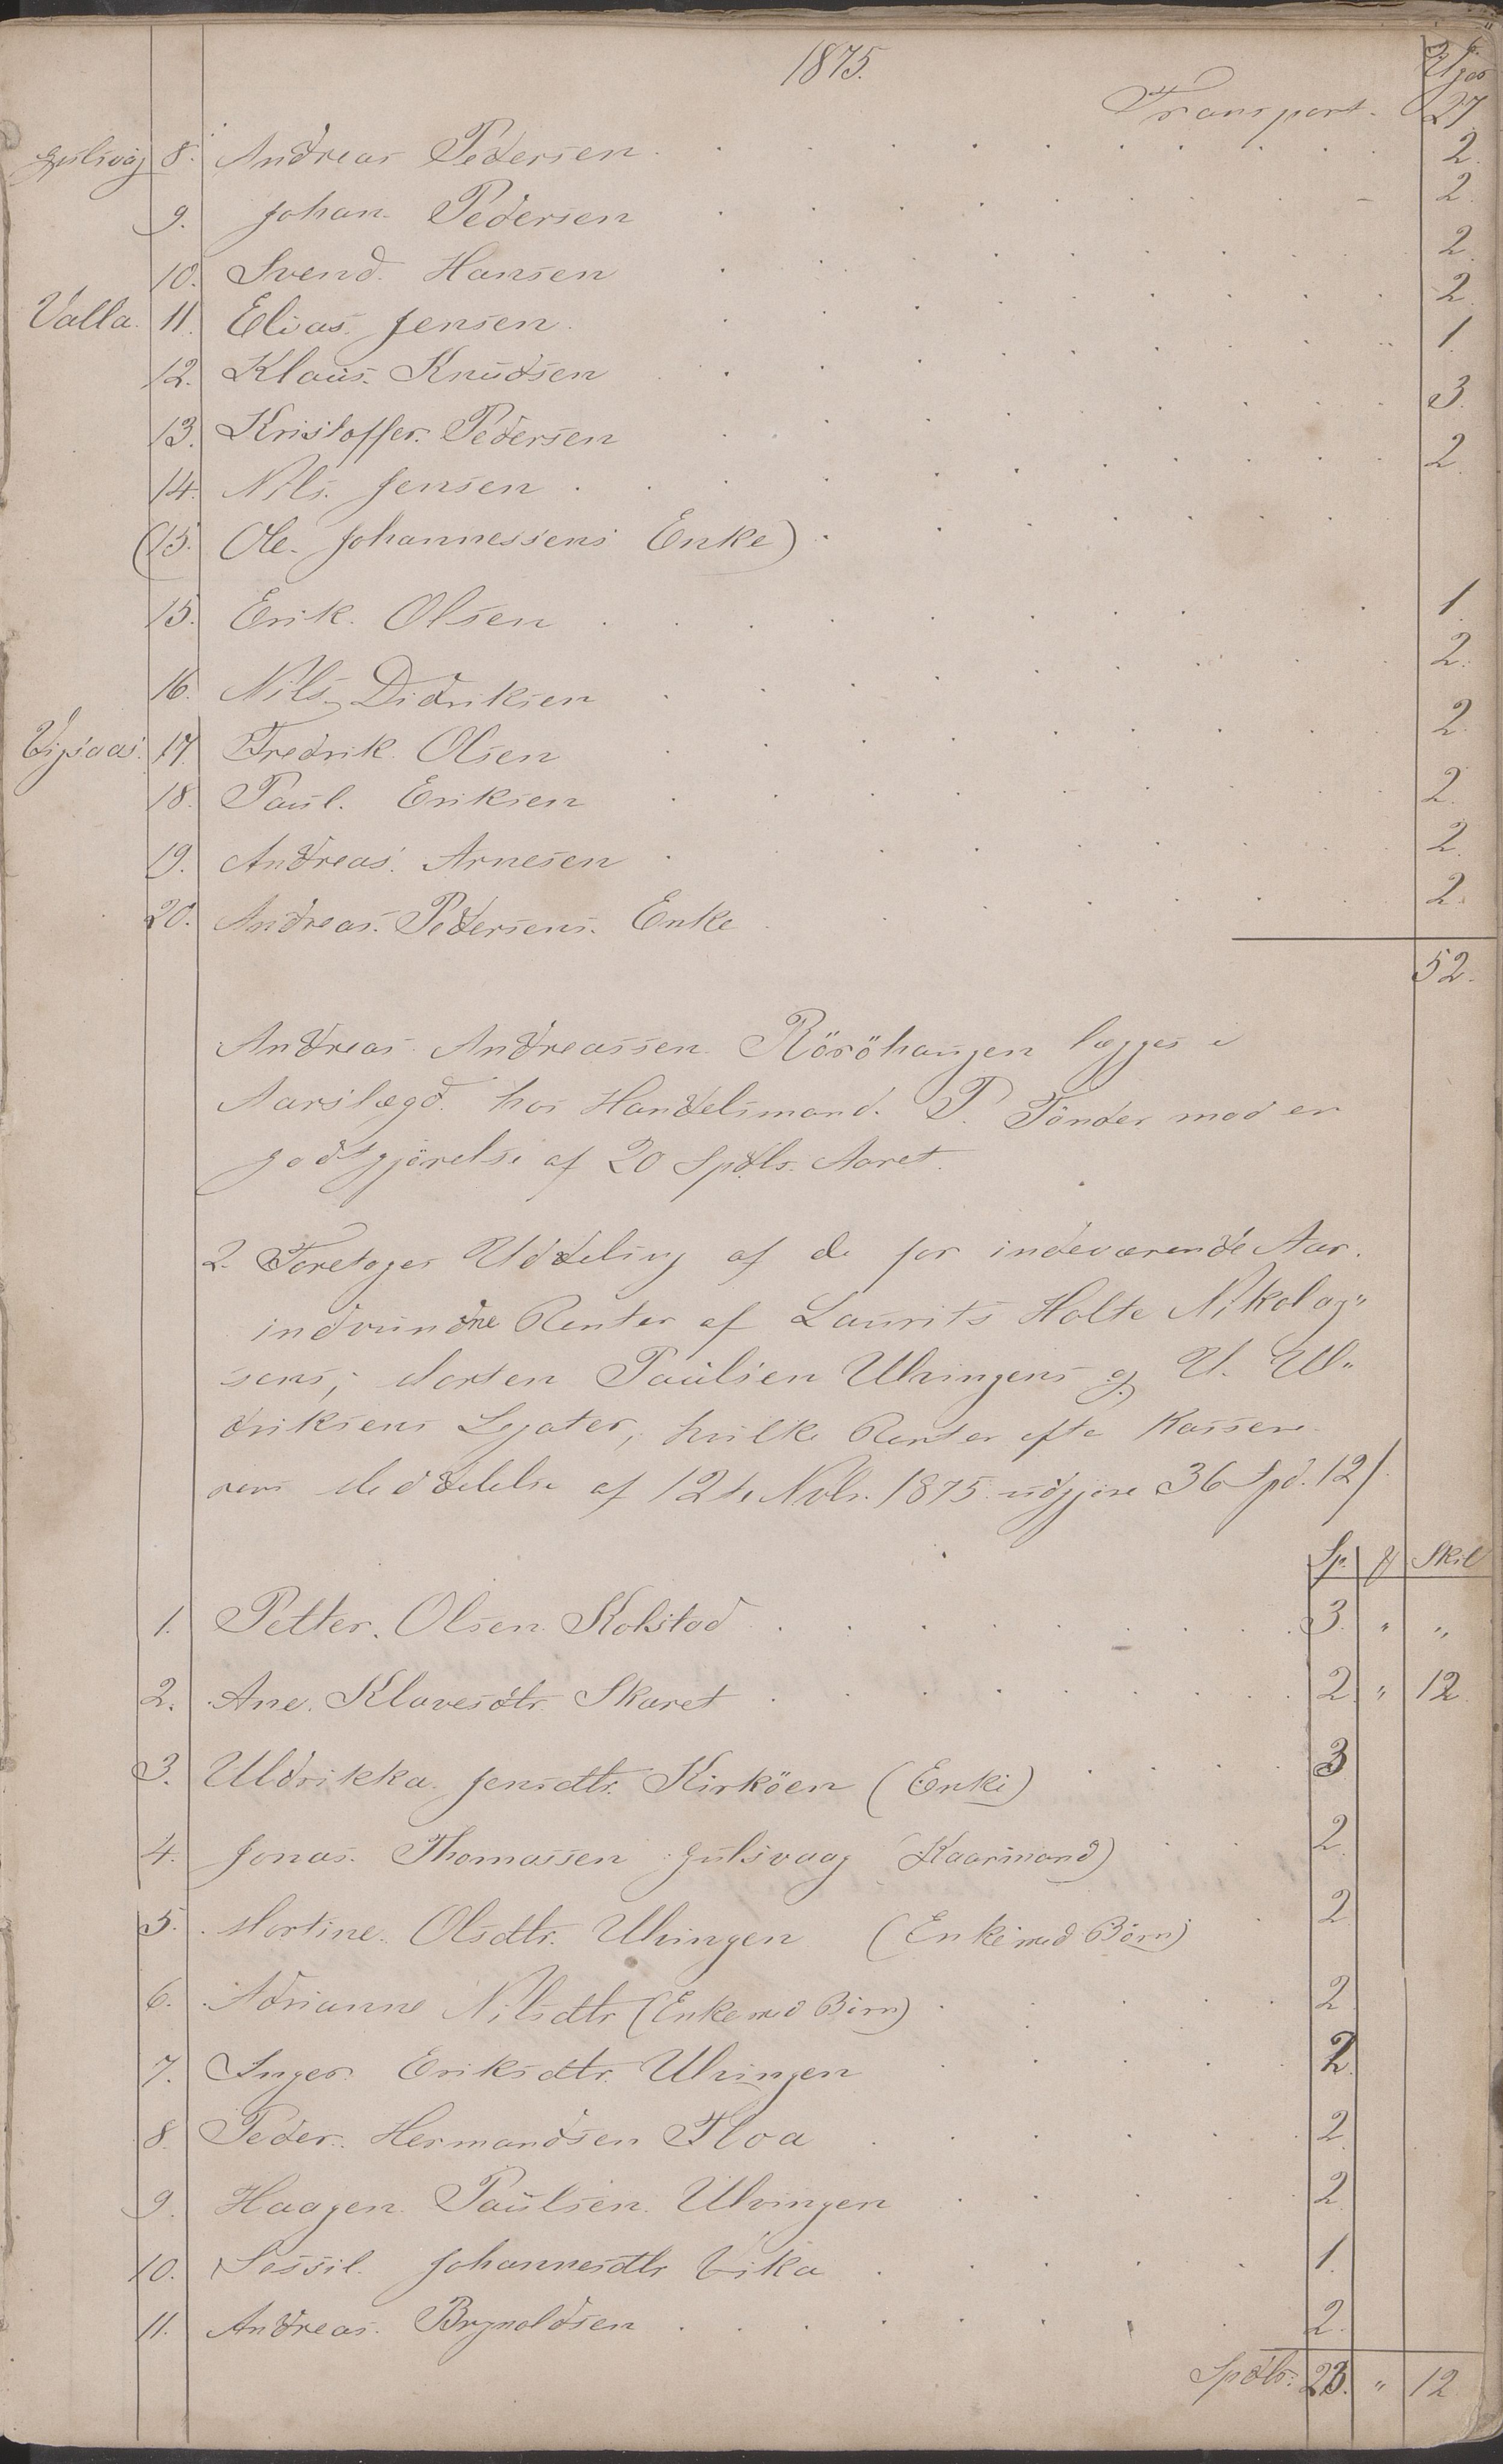 1875.
Uger
Transport. 27
Julsvåg 8. Andreas Pedersen 2.
9. Johan Pedersen 2.
10. Svend Hansen 2.
Valla. 11. Elias Jensen 2.
12. Klaus Knudsen 1.
13. Kristoffer Pedersen 3.
14. Nils Jensen 2.
(15. Ole Johannessens Enke)
15. Erik Olsen 1.
16. Nils Didriksen 2.
Vigsaas 17. Fredrik Olsen 2.
18. Paul Eriksen 2.
19. Andreas Arnesen 2.
20. Andreas Pedersens Enke 2.
52.
Andreas Andreassen Röröhaugen lægges i
Aarslægd hos Handelsmand P. Tönder mod en
godtgjörelse af 20 Spdlr. Aaret.
2. Foretoges Uddeling af de for indeværende Aar
indvundne Renter af Laurits Holte Nikolay„
sens, Morten Paulsen Ulvingens og U. Ul„
driksens Legater, hvilke Renter efter Kassere
rens Meddelelse af 12te Nvbr. 1875 udgjøre 36 Spd. 12 /
Sp. Skil
1. Petter Olsen Kolstad 3. „ „
2. Ane Klavesdtr. Skaret 2. „ 12
3. Uldrikka Jensdtr. Kirköen (Enke) 3
4. Jonas Thomassen Julsvaag (Kaarmand) 2
5. Martine Olsdtr. Ulvingen (Enke med Börn) 2
6. Adrianne Nilsdtr (Enke med Börn) 2
7. Inger Eriksdtr. Ulvingen 2
8. Peder Hermandsen Floa 2
9. Haagen Paulsen Ulvingen 2
10. Sessil Johannesdtr Vika 1.
11. Andreas Brynoldsen 2.
Spdlr. 23. „ 12